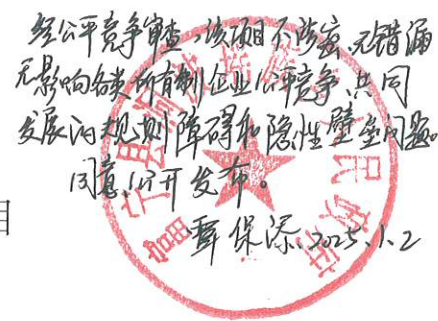 经公平竞争审查,该项目不涉密,无错漏
无影响各类所有制企业公平竞争、共同
发展的规则障碍和隐性壁垒问题。
同意公开发布。
覃保添 2025.1.2